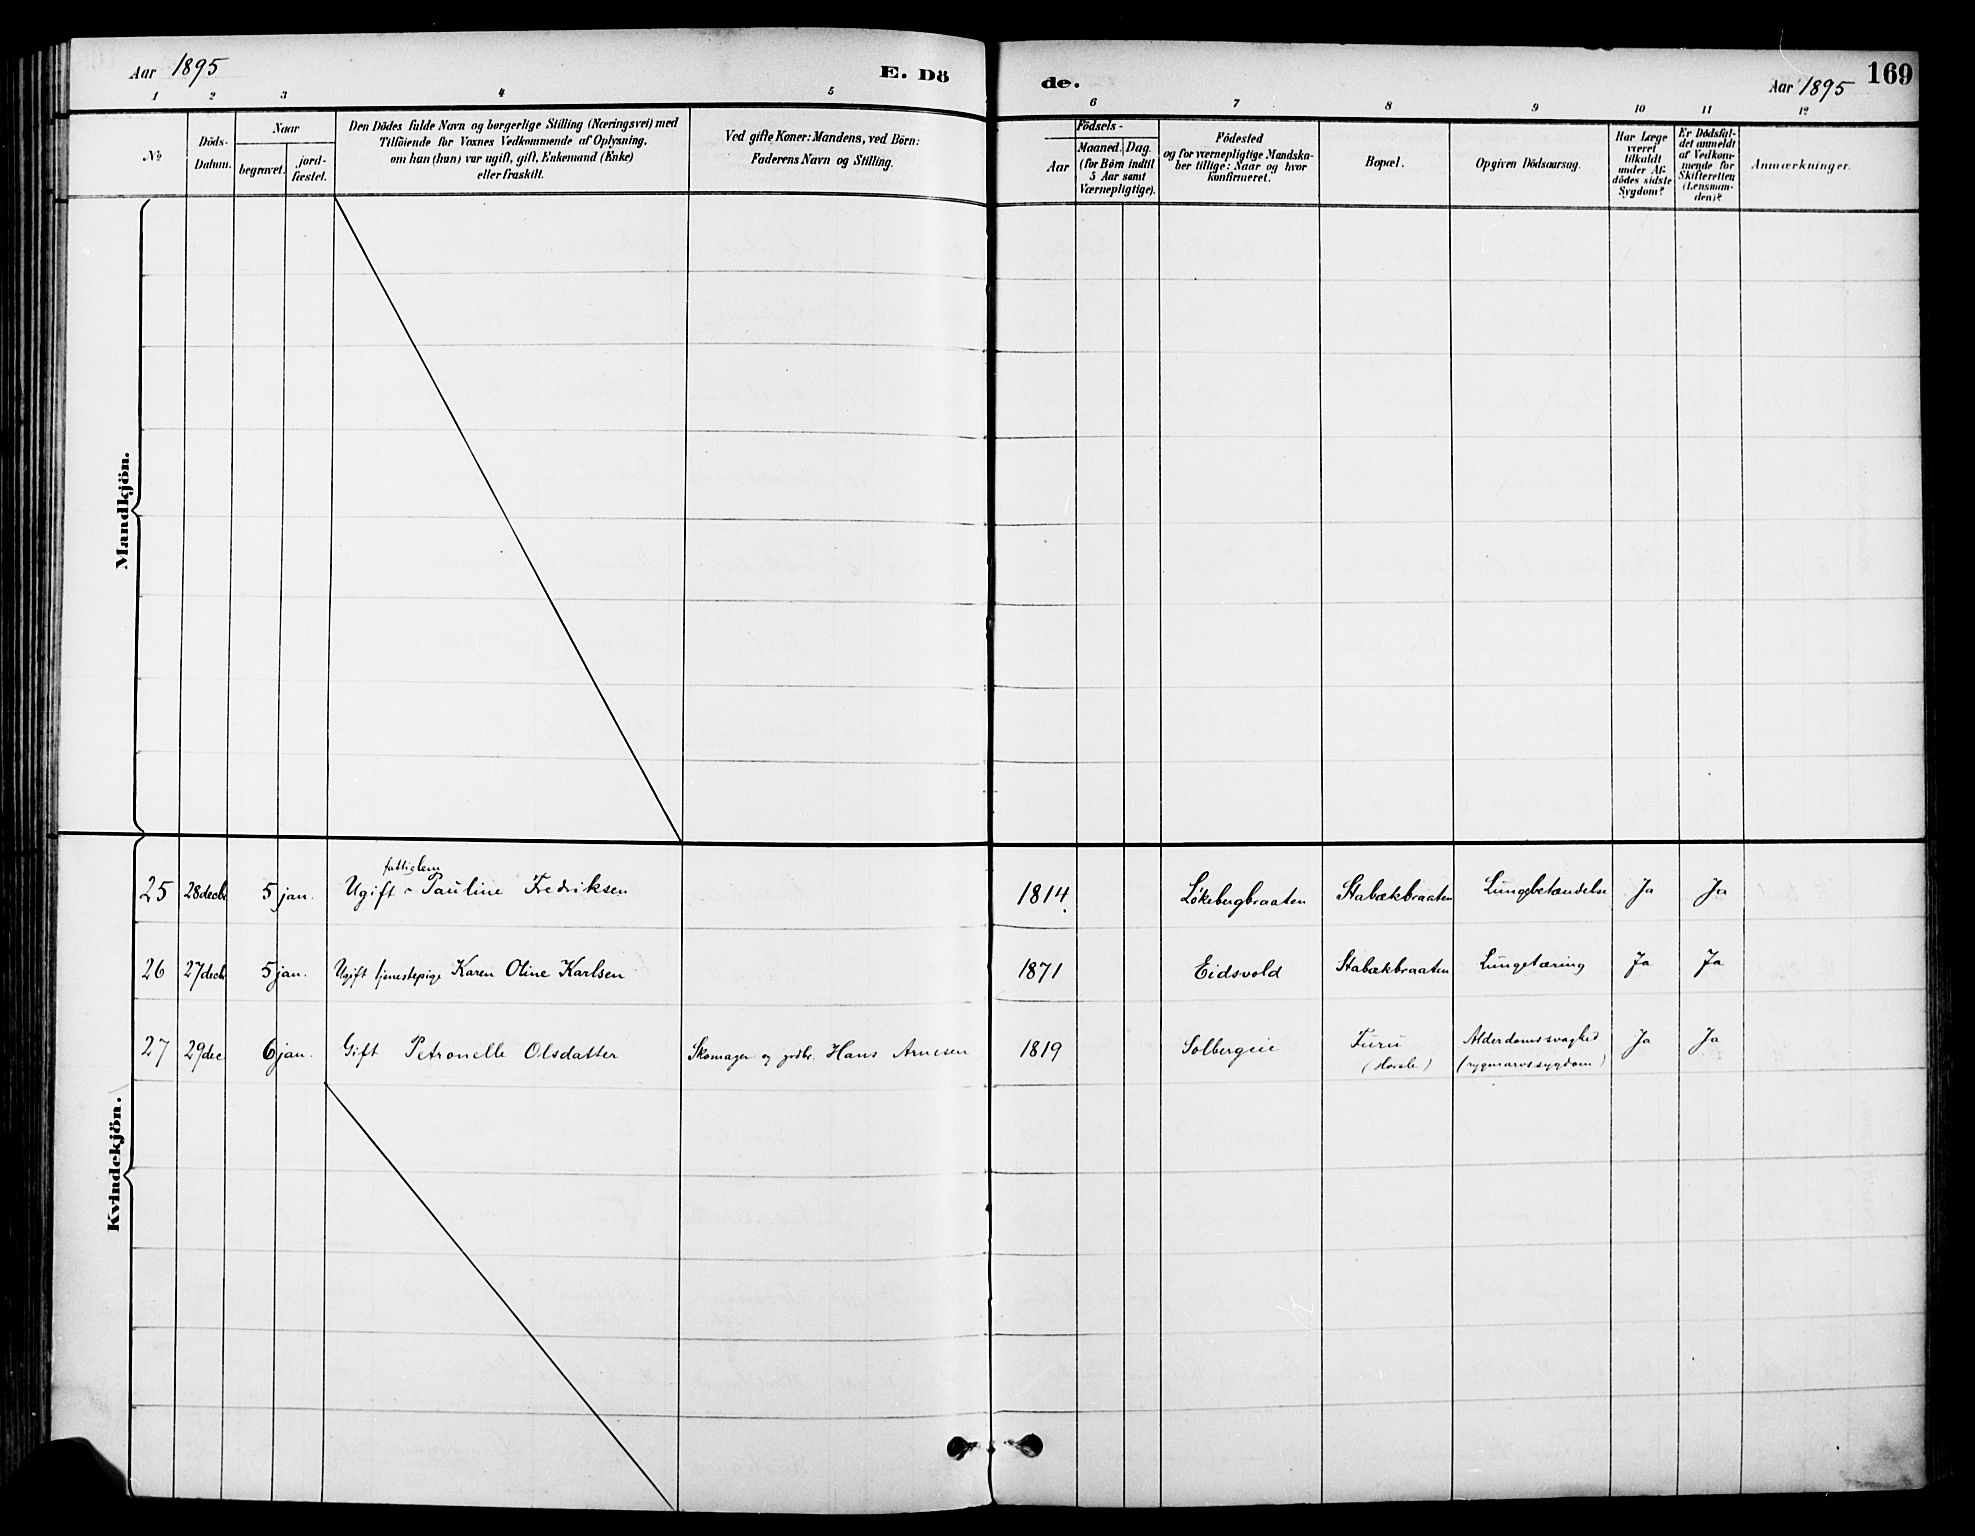 Aar 1895
E. Dö
de.
Aar 1895
169
1 2 3 4 5 6 7 8 9 10 11 12
№
Döds-
Datum.
Naar
begravet.
jord-
fæstet.
Den Dödes fulde Navn og borgerlige Stilling (Næringsvei) med
Tilföiende for Voxnes Vedkommende af Oplysning,
om han (hun) var ugift, gift, Enkemand (Enke)
eller fraskilt.
Ved gifte Koner: Mandens, ved Börn:
Faderens Navn og Stilling.
Födsels-
Aar
Maaned. Dag.
(for Börn indtil
5 Aar samt
Værnepligtige).
Födested
og for værnepligtige Mandska-
ber tillige: Naar og hvor
konfirmeret.
Bopæl.
Opgiven Dödsaarsag.
Har Læge
været
tilkaldt
under Af-
dödes sidste
Sygdom?
Er Dödsfal-
det anmeldt
af Vedkom-
mende for
Skifteretten
(Lensman-
den)?
Anmærkninger.
Mandkjön.
Kvindekjön.
fattiglem
25 28decbr 5 jan. Ugift Pauline Fredriksen 1814. Lökebergbraaten Stabækbraaten Lungebetændelse Ja Ja
26 27decb 5 jan. Ugift tjenestepige Karen Oline Karlsen 1871 Eidsvold Stabækbraaten Lungetæring Ja Ja
27 29dec. 6 jan. Gift Petronelle Olsdatter Skomager og Hans Arnesen 1819 Solbergeie Furu Alderdomssvaghed Ja Ja
(rygmarvssygdom)